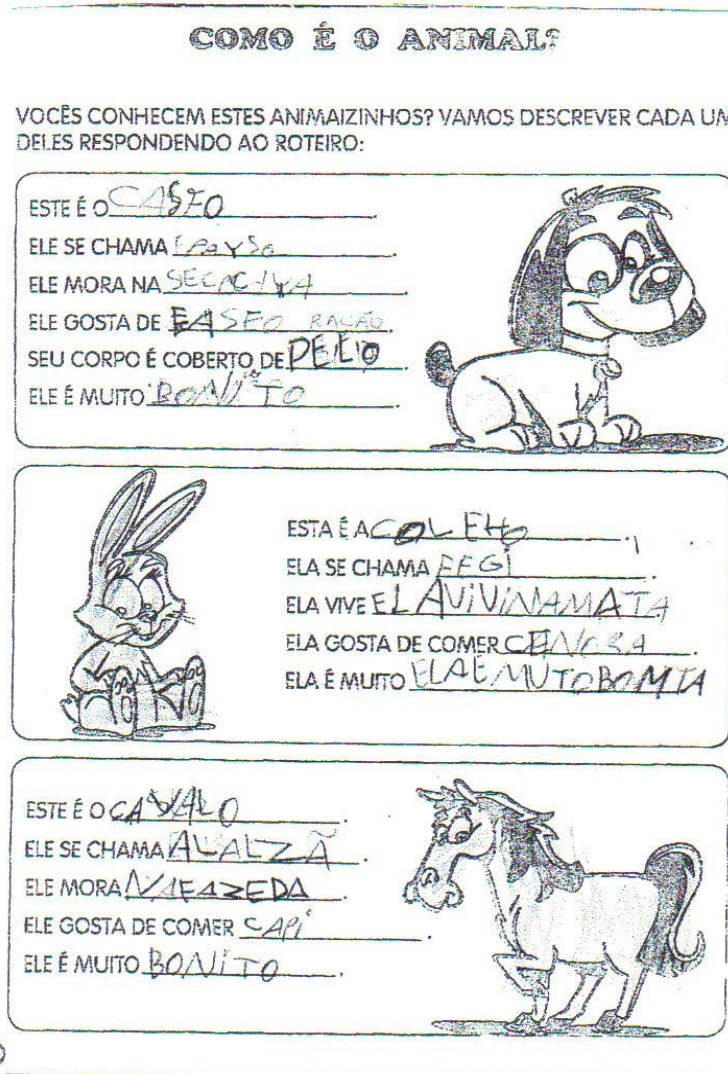 COMO É O ANIMAL?
VOCÊS CONHECEM ESTES ANIMAIZINHOS? VAMOS DESCREVER CADA UM
DELES RESPONDENDO AO ROTEIRO:
ESTE É O CASFO.
ELE SE CHAMA
ELE MORA NA
ELE GOSTA DE EASFO RAÇÃO.
SEU CORPO É COBERTO DE PELIO.
ELE É MUITO BONITO.
ESTA É A COLEHO.
ELA SE CHAMA FFGI.
ELA VIVE ELAVIVINAMATA
ELA GOSTA DE COMER CENORA.
ELA É MUITO ELAEMUTOBOMTA
ESTE É O CAVALO.
ELE SE CHAMA ALALZÃ.
ELE MORA NAFAZEDA.
ELE GOSTA DE COMER CAPI.
ELE É MUITO BONITO.